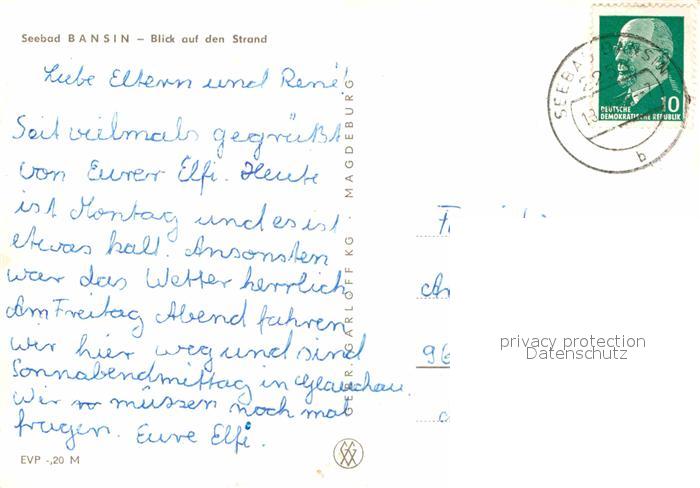 Seebad BANSIN – Blick auf den Strand
Liebe Eltern und René!
Seit vielmals gegrüßt
von Eurer Elfi. Heute
ist Montag und es ist
etwas kalt. Ansonsten
war das Wetter herrlich.
Am Freitag Abend fahren
wir hier weg und sind
Sonnabendmittag in Glauchau.
Wir müssen noch mal
fragen. Eure Elfi.
EVP -,20 M
GEBR. GARLOFF KG · MAGDEBURG
SEEBAD BANSIN
b
10
DEUTSCHE
DEMOKRATISCHE REPUBLIK
96
privacy protection
Datenschutz